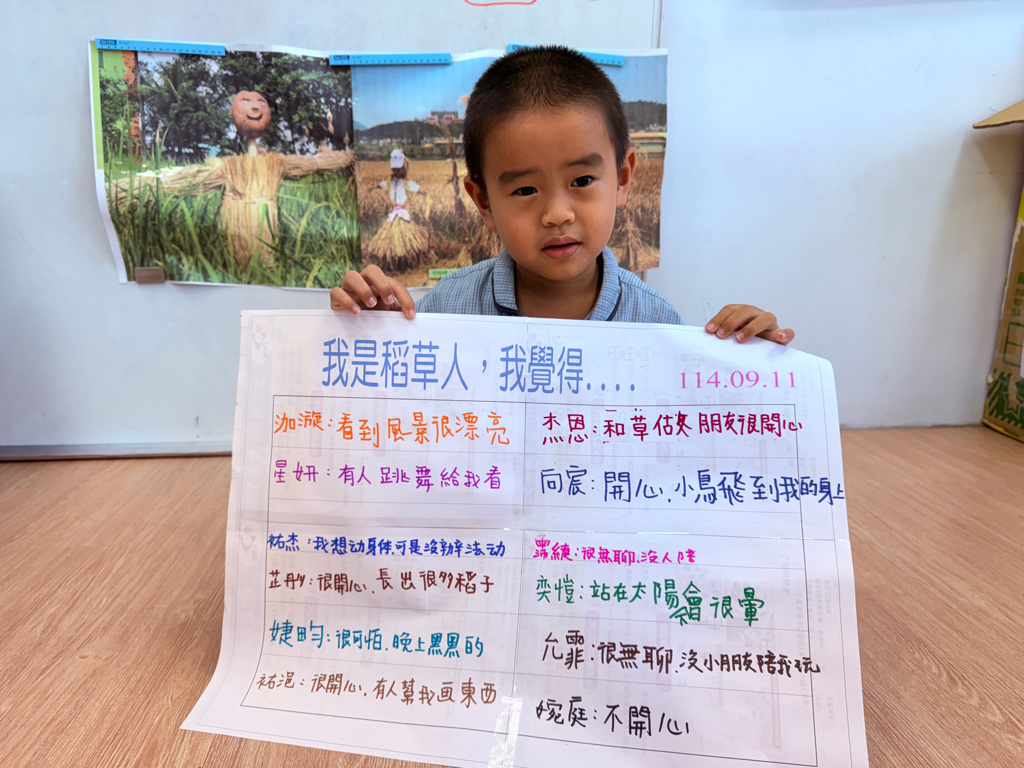 我是稻草人，我覺得....
114.09.11
泇漩：看到風景很漂亮
星妍：有人跳舞給我看
祐杰：我想动身体.可是沒辦法动
芷彤：很開心、長出很多稻子
婕畇：很可怕.晚上黑黑的
祐浥：很開心.有人幫我画東西
杰恩：和草估朋友很開心
向宸：開心.小鳥飛到我的身上
很無聊.沒人陪
奕愷：站在太陽會很暈
允霏：很無聊.沒小朋友陪我玩
婗庭：不開心